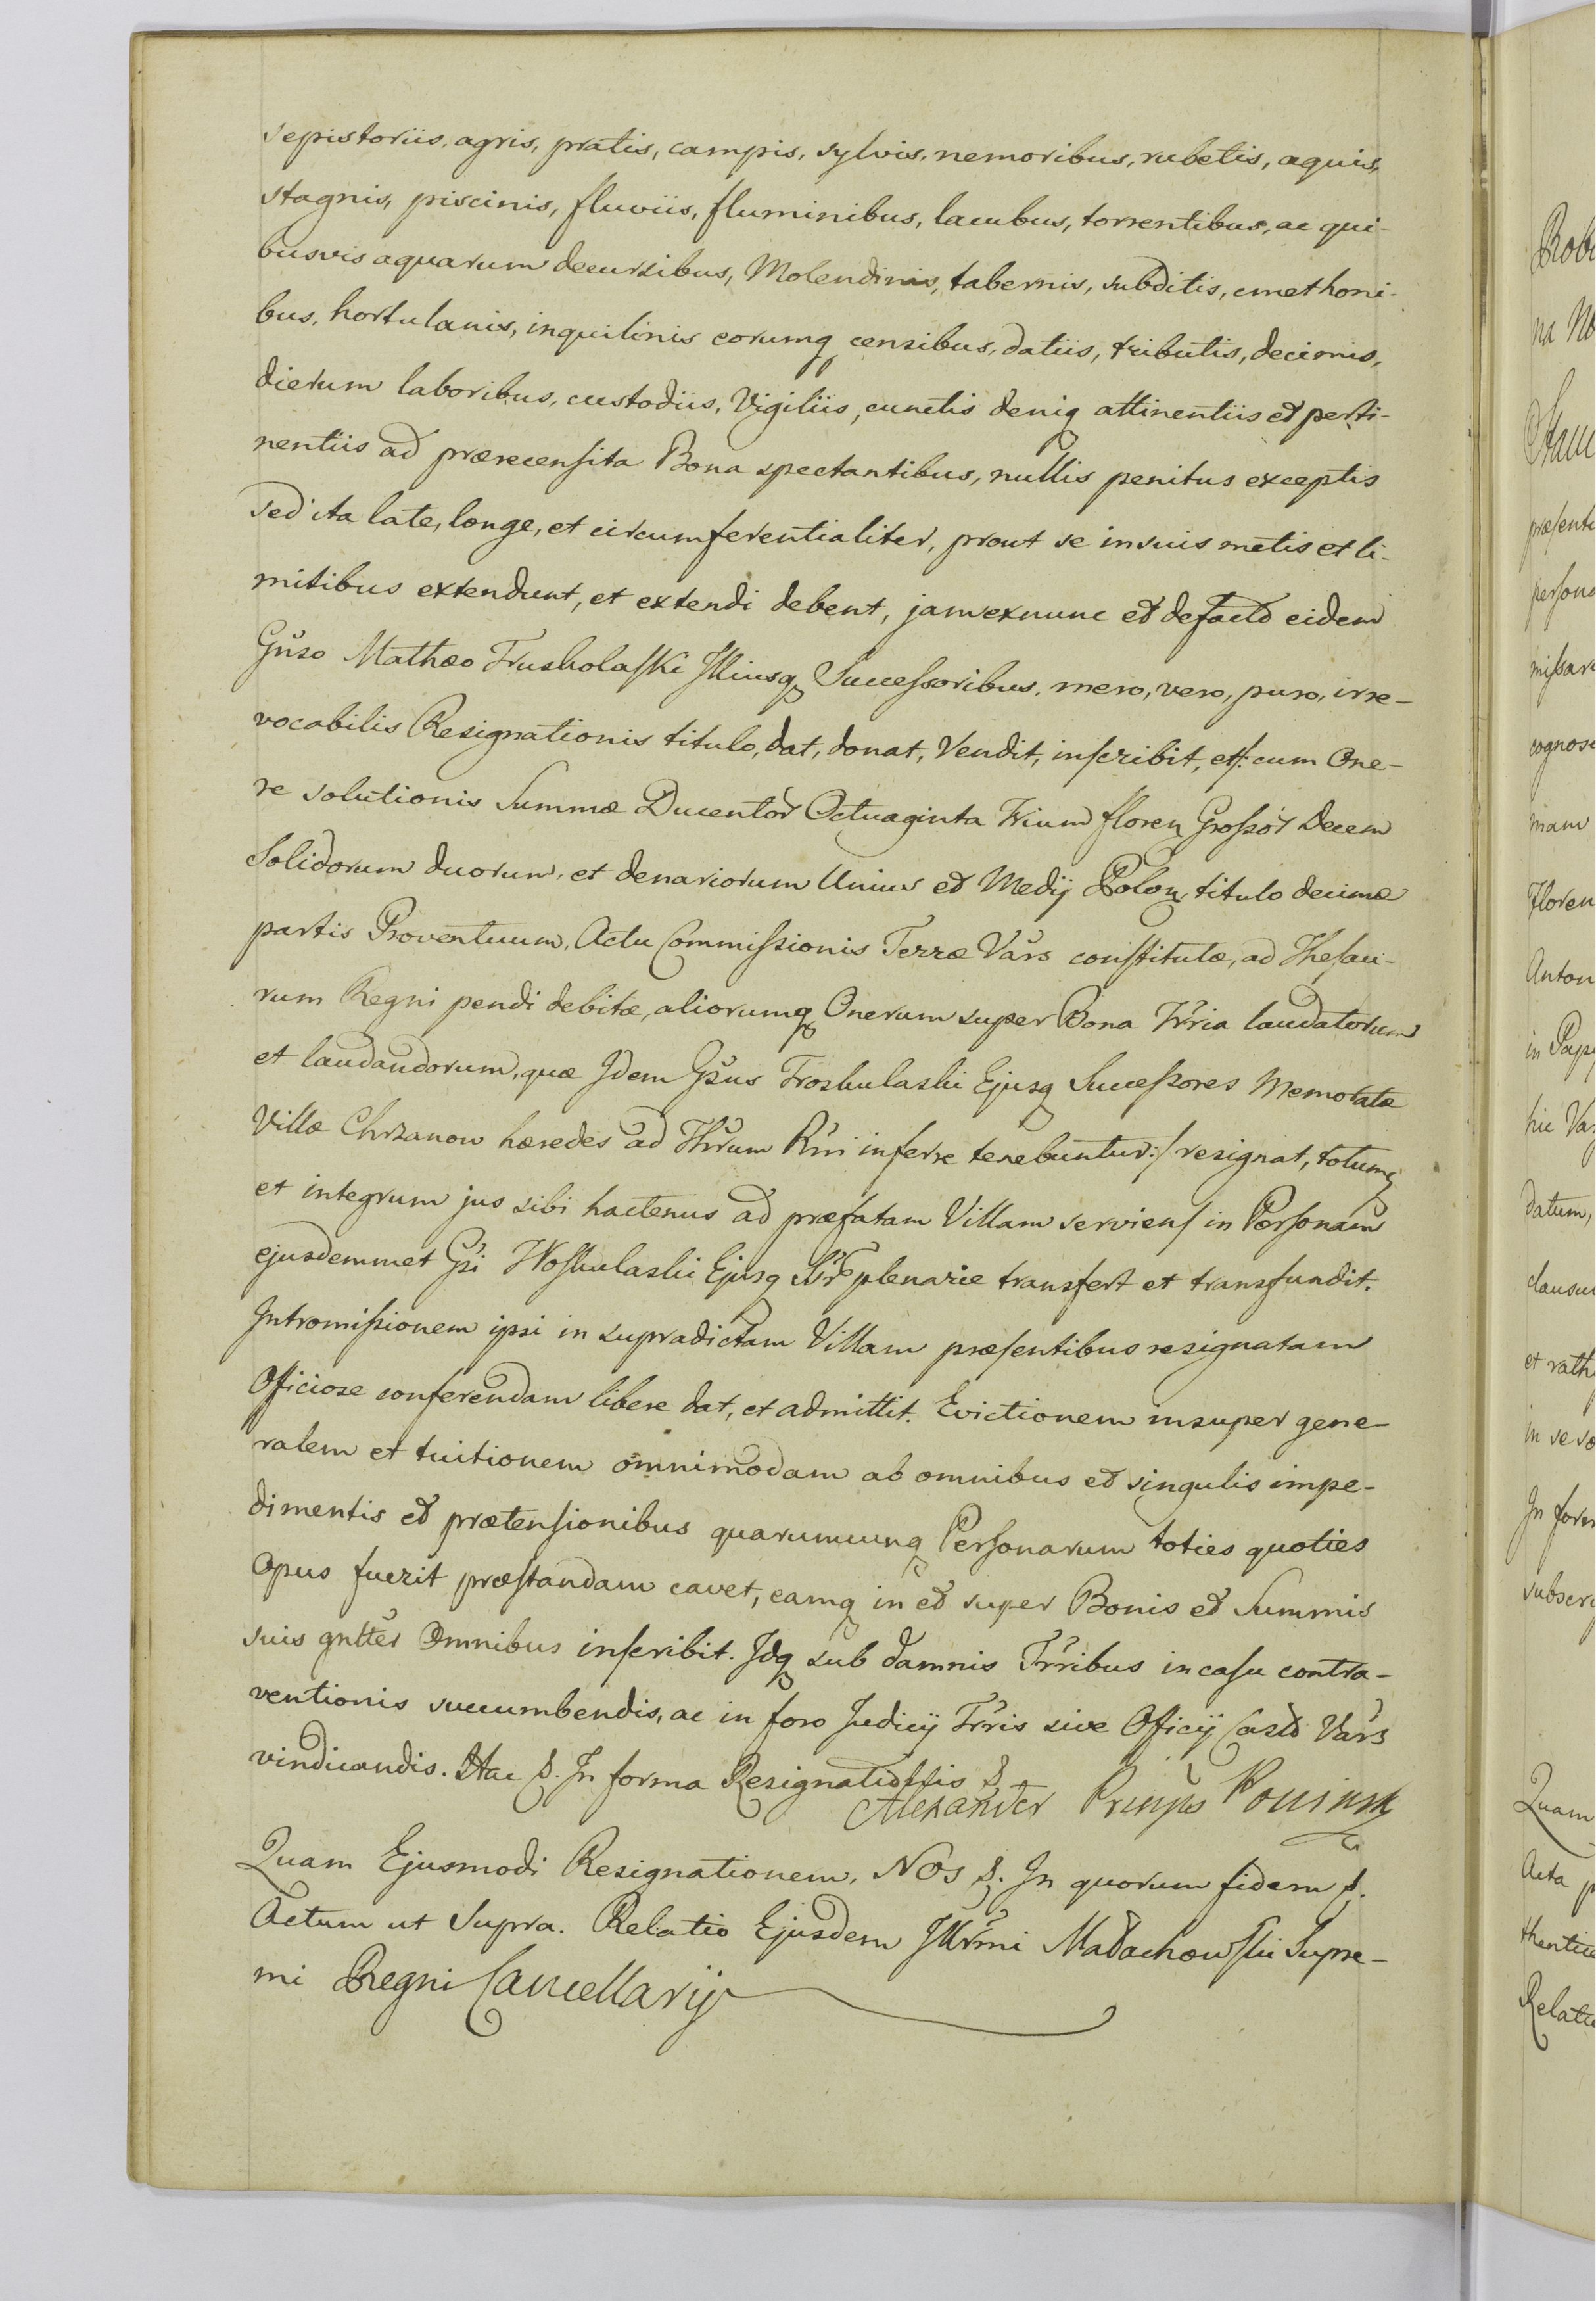 sepistoriis, agris, pratis, campis, sylvis, nemoribus, rubetis, aquis,
stagnis, piscinis, fluviis, fluminibus, lacubus, torrentibus, ac qui-
busvis aquarum decursibus, Molendinis, tabernis, subditis, cmethoni-
bus, hortulanis, inquilinis eorumq censibus, datiis, tributis, decimis,
dierum laboribus, custodiis, Vigiliis, cunctis deniq attinentiis et perti-
nentiis ad prærecensita Bona spectantibus, nullis penitus exceptis
sed ita late, longe, et circumferentialiter, prout se in suis metis et li-
mitibus extendunt, et extendi debent, jam exnunc et defacto eidem
Gnso Mathæo Truskolaski Illiusq Successoribus, mero, vero, puro, irre-
vocabilis Resignationis titulo, dat, donat, Vendit, inscribit, et /: cum One-
re solutionis Summæ Ducentor Octuaginta Trium floren Grossor Decem
Solidorum duorum, et denariorum Unius et Medij Polon titulo decimæ
partis Proventuum, Actu Commissionis Terræ Vars constitutæ, ad Thesau-
rum Regni pendi debitæ, aliorumq Onerum super Bona Trria laudatorum
et laudandorum, quæ Idem Gsus Troskulaski Ejusq Successores Memoratæ
Villæ Chrzanow hæredes ad Thrum Rni inferre tenebuntur :/ resignat, totumq
et integrum jus sibi hactenus ad præfatam Villam serviens in Personam
ejusdemmet Gsi Troskulaski Ejusq plenarie transfert et transfundit.
Intromissionem ipsi in supradictam Villam præsentibus resignatam
Officiose conferendam libere dat, et admittit. Evictionem insuper gene-
ralem et tuitionem omnimodam ab omnibus et singulis impe-
dimentis et prætensionibus quarumcunq Personarum toties quoties
opus fuerit præstandam cavet, eamq in et super Bonis et Summis
suis gnlter Omnibus inscribit. Idq sub damnis Trribus in casu contra-
ventionis succumbendis, ac in foro Judicij Trris sive Officij Castr Vars
vindicandis. Hac &. In forma Resignationis &
Alexander Princeps Poninski
Quam Ejusmodi Resignationem, Nos &. In quorum fidem &.
Actum ut Supra. Relatio Ejusdem Illrmi Małachowski Supre-
mi Regni Cancellarij